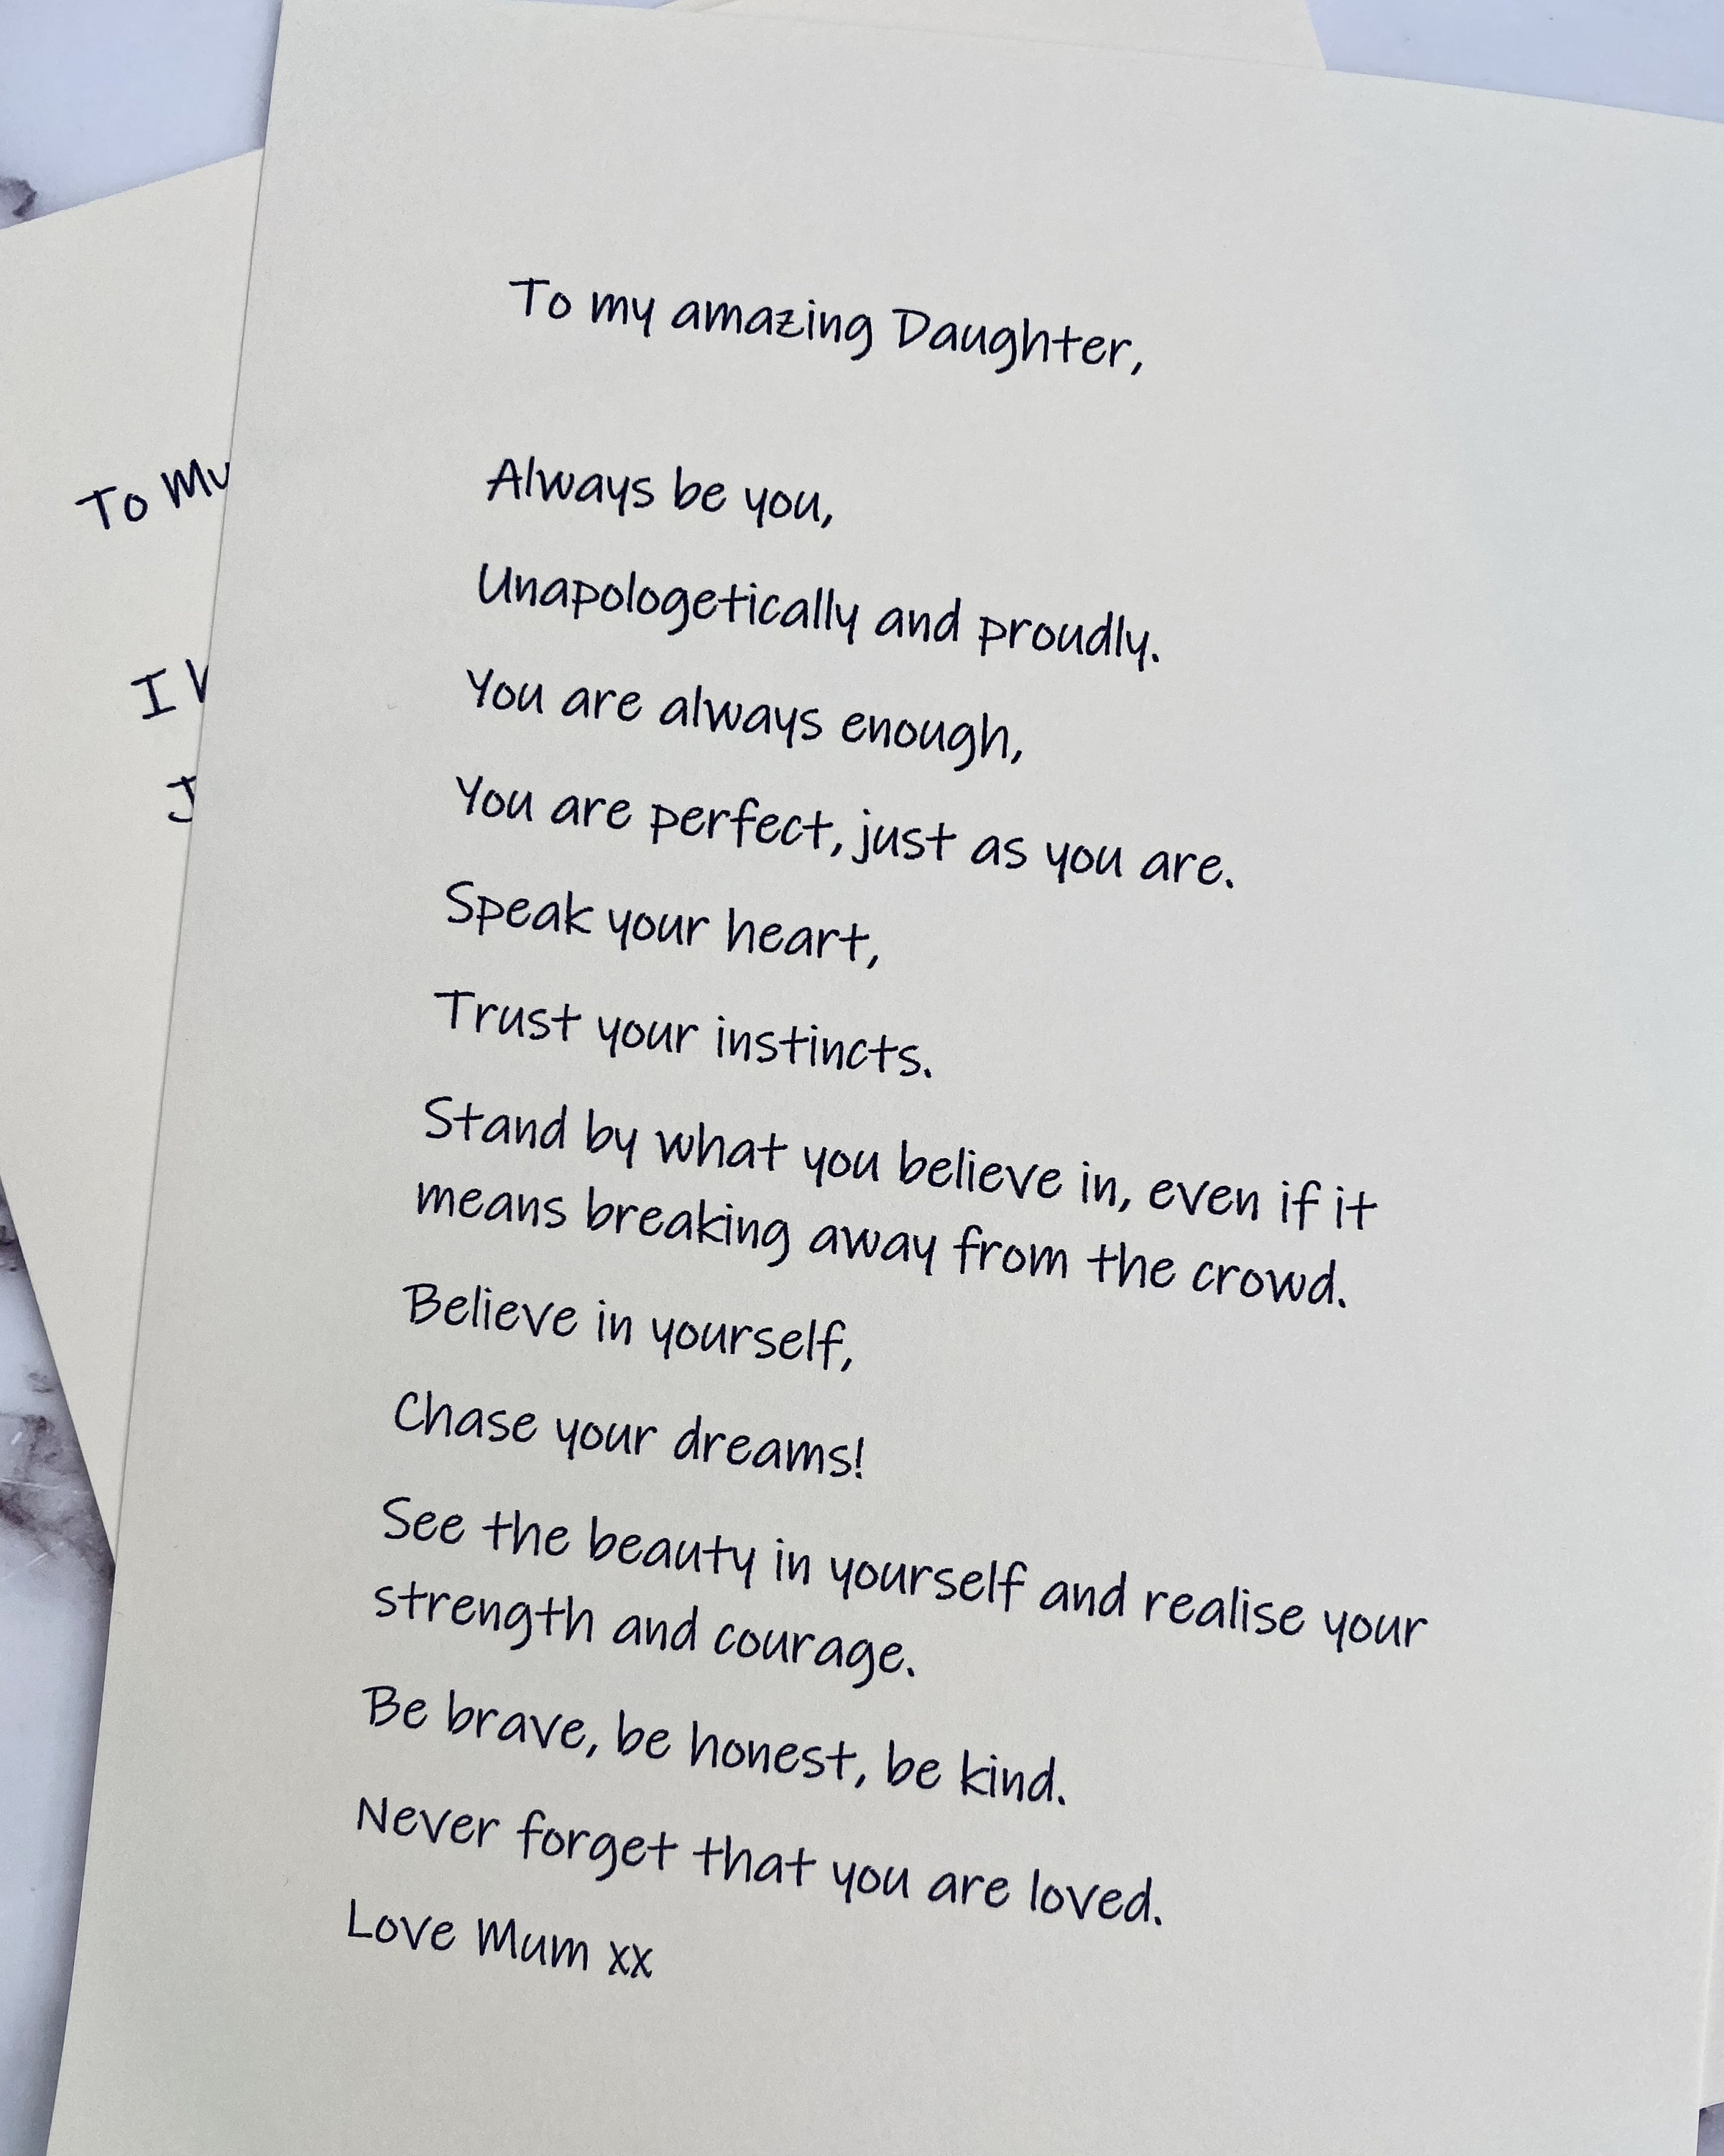 To my amazing Daughter,
Always be you,
Unapologetically and proudly.
You are always enough,
You are perfect, just as you are.
Speak your heart,
Trust your instincts.
Stand by what you believe in, even if it
means breaking away from the crowd.
Believe in yourself,
Chase your dreams!
See the beauty in yourself and realise your
strength and courage.
Be brave, be honest, be kind.
Never forget that you are loved.
Love Mum xx
To
I